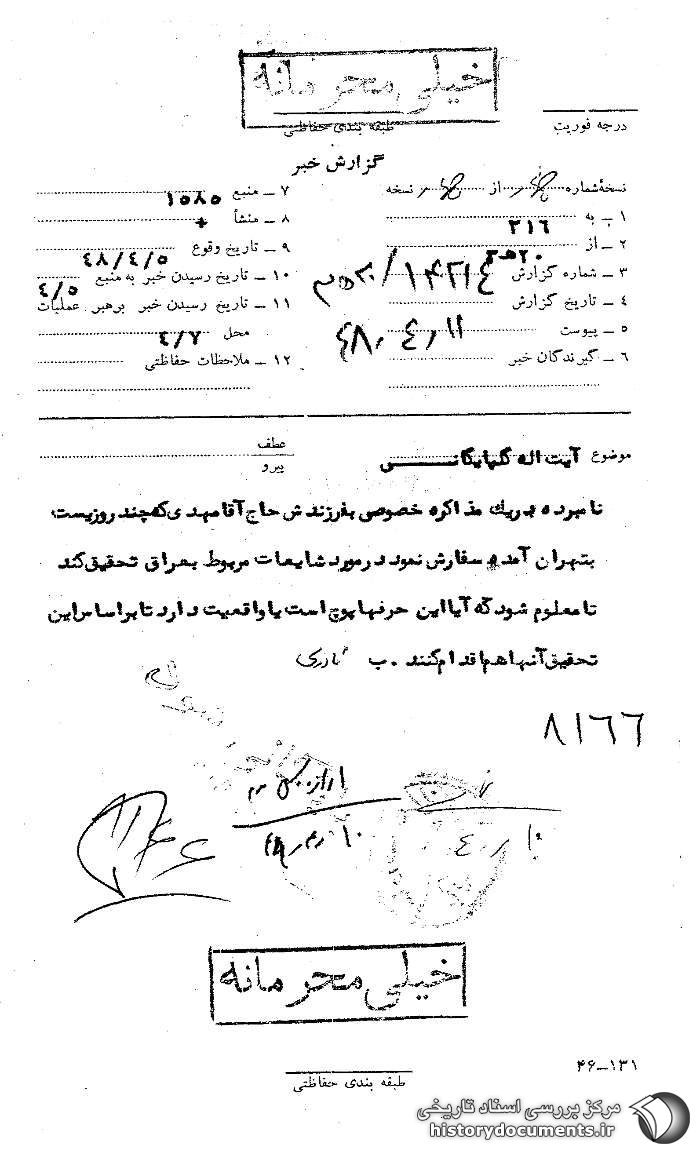 خیلی محرمانه
درجه فوریت
طبقه بندی حفاظتی
گزارش خبر
نسخهٔ شماره از نسخه
۱ ـ به ۳۱۶
۲ ـ از ۲۰ هـ ۳
۳ ـ شماره گزارش
۴ ـ تاریخ گزارش
۵ ـ پیوست ۴۸٫۴٫۱۱
۶ ـ گیرندگان خبر
۷ ـ منبع ۱۵۸۵
۸ ـ منشأ
۹ ـ تاریخ وقوع ۴۸/۴/۵
۱۰ ـ تاریخ رسیدن خبر به منبع ۴/۵
۱۱ ـ تاریخ رسیدن خبر برهبر عملیات
محل ۴/۷
۱۲ ـ ملاحظات حفاظتی
موضوع آیت اله گلپایگانی
عطف
پیرو
نامبرده در یك مذاکره خصوصی بفرزندش حاج آقا مهدی که چند روزیست
بتهران آمده سفارش نمود در مورد شایعات مربوط بعراق تحقیق کند
تا معلوم شود که آیا این حرفها پوچ است یا واقعیت دارد تا بر اساس این
تحقیق آنها هم اقدام کنند . ب نادری
۸۱۶۶
خیلی محرمانه
۴۶ـ۱۳۱
طبقه بندی حفاظتی
مرکز بررسی اسناد تاریخی
historydocuments.ir